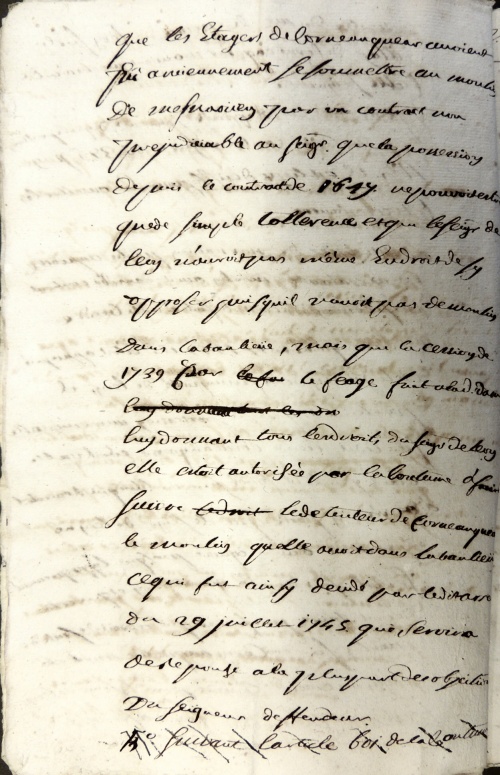 que les Etagers de Corneauquear auroient
pu anciennement se soumettre au moulin
de par un contrat non
prejudiciable au seigr. que la possession
depuis le contrat de 1647 ne pouvoit estre
que de simple tollerence et que le seigr de
Leon n'auroit pas même Eu droit de s'y
opposer puisquil navoit pas de moulin
dans la banlieüe, mais que la cession de
1739 par le feage fait a lad. dame
luy donnant tous les droits du seigr de Leon
elle etoit autorisée par la coutume a faire
suivre le detenteur de Corneauquear
le moulin quelle avoit dans la banlieüe
ce qui fut ainsy decidé par led. arret
du 29 juillet 1745 qui servira
de reponse a la pluspart des objections
du seigneur deffendeur.
5o suivant l'article de la coutume